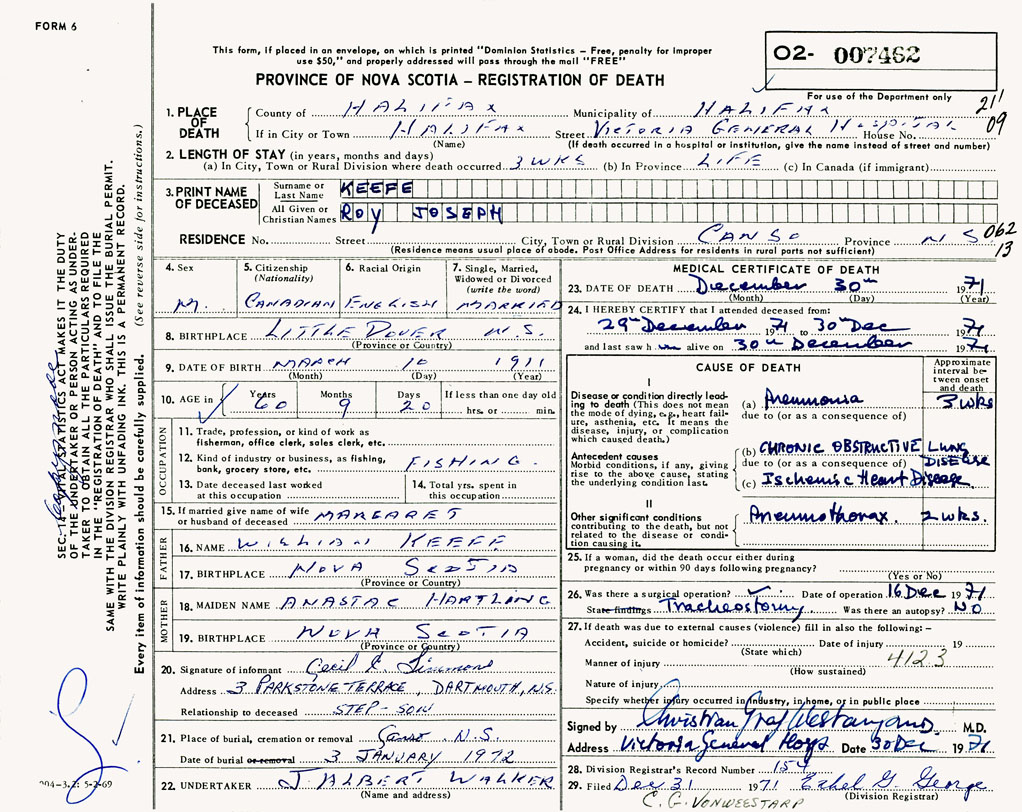 FORM 6
This form, if placed in an envelope, on which is printed "Dominion Statistics – Free, penalty for improper
use $50," and properly addressed will pass through the mail "FREE"
PROVINCE OF NOVA SCOTIA – REGISTRATION OF DEATH
O2- 007462
For use of the Department only
211
09
1. PLACE OF DEATH
County of HALIFAX Municipality of HALIFAX
If in City or Town HALIFAX Street VICTORIA GENERAL HOSPITAL House No.
(Name) (If death occurred in a hospital or institution, give the name instead of street and number)
2. LENGTH OF STAY (in years, months and days)
(a) In City, Town or Rural Division where death occurred 3 WKS (b) In Province LIFE (c) In Canada (if immigrant)
3. PRINT NAME OF DECEASED
Surname or Last Name KEEFE
All Given or Christian Names ROY JOSEPH
RESIDENCE No. Street City, Town or Rural Division CANSO Province N S.
062
13
(Residence means usual place of abode. Post Office Address for residents in rural parts not sufficient)
4. Sex M.
5. Citizenship (Nationality) CANADIAN
6. Racial Origin ENGLISH
7. Single, Married, Widowed or Divorced (write the word) MARRIED
8. BIRTHPLACE LITTLE DOVER N.S.
(Province or Country)
9. DATE OF BIRTH MARCH 10 1911
(Month) (Day) (Year)
10. AGE in Years 60 Months 9 Days 20 If less than one day old hrs. or min.
OCCUPATION
11. Trade, profession, or kind of work as
fisherman, office clerk, sales clerk, etc.
12. Kind of industry or business, as fishing,
bank, grocery store, etc. FISHING.
13. Date deceased last worked
at this occupation
14. Total yrs. spent in
this occupation
15. If married give name of wife
or husband of deceased MARGARET
FATHER
16. NAME WILLIAM KEEFE
17. BIRTHPLACE NOVA SCOTIA
(Province or Country)
MOTHER
18. MAIDEN NAME ANASTAC HARTLING
19. BIRTHPLACE NOVA SCOTIA
(Province or Country)
20. Signature of informant Cecil E. Simmons
Address 3 PARKSTONE TERRACE, DARTMOUTH, N.S.
Relationship to deceased STEP-SON
21. Place of burial, cremation or removal Canso N.S.
Date of burial or removal 3 JANUARY 1972
22. UNDERTAKER J. ALBERT WALKER
(Name and address)
MEDICAL CERTIFICATE OF DEATH
23. DATE OF DEATH December 30th 1971
(Month) (Day) (Year)
24. I HEREBY CERTIFY that I attended deceased from:
29th December 1971 to 30th Dec 1971
and last saw him alive on 30th December 1971
CAUSE OF DEATH
Approximate interval between onset and death
I
Disease or condition directly leading to death (This does not mean the mode of dying, e.g., heart failure, asthenia, etc. It means the disease, injury, or complication which caused death.)
(a) Pneumonia 3 wks
due to (or as a consequence of)
Antecedent causes
Morbid conditions, if any, giving rise to the above cause, stating the underlying condition last.
(b) CHRONIC OBSTRUCTIVE LUNG DISEASE
due to (or as a consequence of)
(c) Ischemic Heart Disease
II
Other significant conditions contributing to the death, but not related to the disease or condition causing it.
Pneumothorax. 2 wks.
25. If a woman, did the death occur either during
pregnancy or within 90 days following pregnancy?
(Yes or No)
26. Was there a surgical operation? ✓ Date of operation 16 Dec 1971
State findings Tracheostomy Was there an autopsy? NO
27. If death was due to external causes (violence) fill in also the following: –
Accident, suicide or homicide? Date of injury 19
(State which)
4123
Manner of injury
(How sustained)
Nature of injury
Specify whether injury occurred in industry, in home, or in public place
Signed by Christian Graf Westarp M.D.
Address Victoria General Hosp Date 30 Dec 1971
28. Division Registrar's Record Number
29. Filed Dec 31 1971 Ethel G. George
(Division Registrar)
C. G. VONWEESTARP
SEC. 14- VITAL STATISTICS ACT MAKES IT THE DUTY
OF THE UNDERTAKER OR PERSON ACTING AS UNDER-
TAKER TO OBTAIN ALL THE PARTICULARS REQUIRED
IN THE "REGISTRATION OF DEATH" AND TO FILE THE
SAME WITH THE DIVISION REGISTRAR WHO SHALL ISSUE THE BURIAL PERMIT.
WRITE PLAINLY WITH UNFADING INK. THIS IS A PERMANENT RECORD.
Every item of information should be carefully supplied. (See reverse side for instructions.)